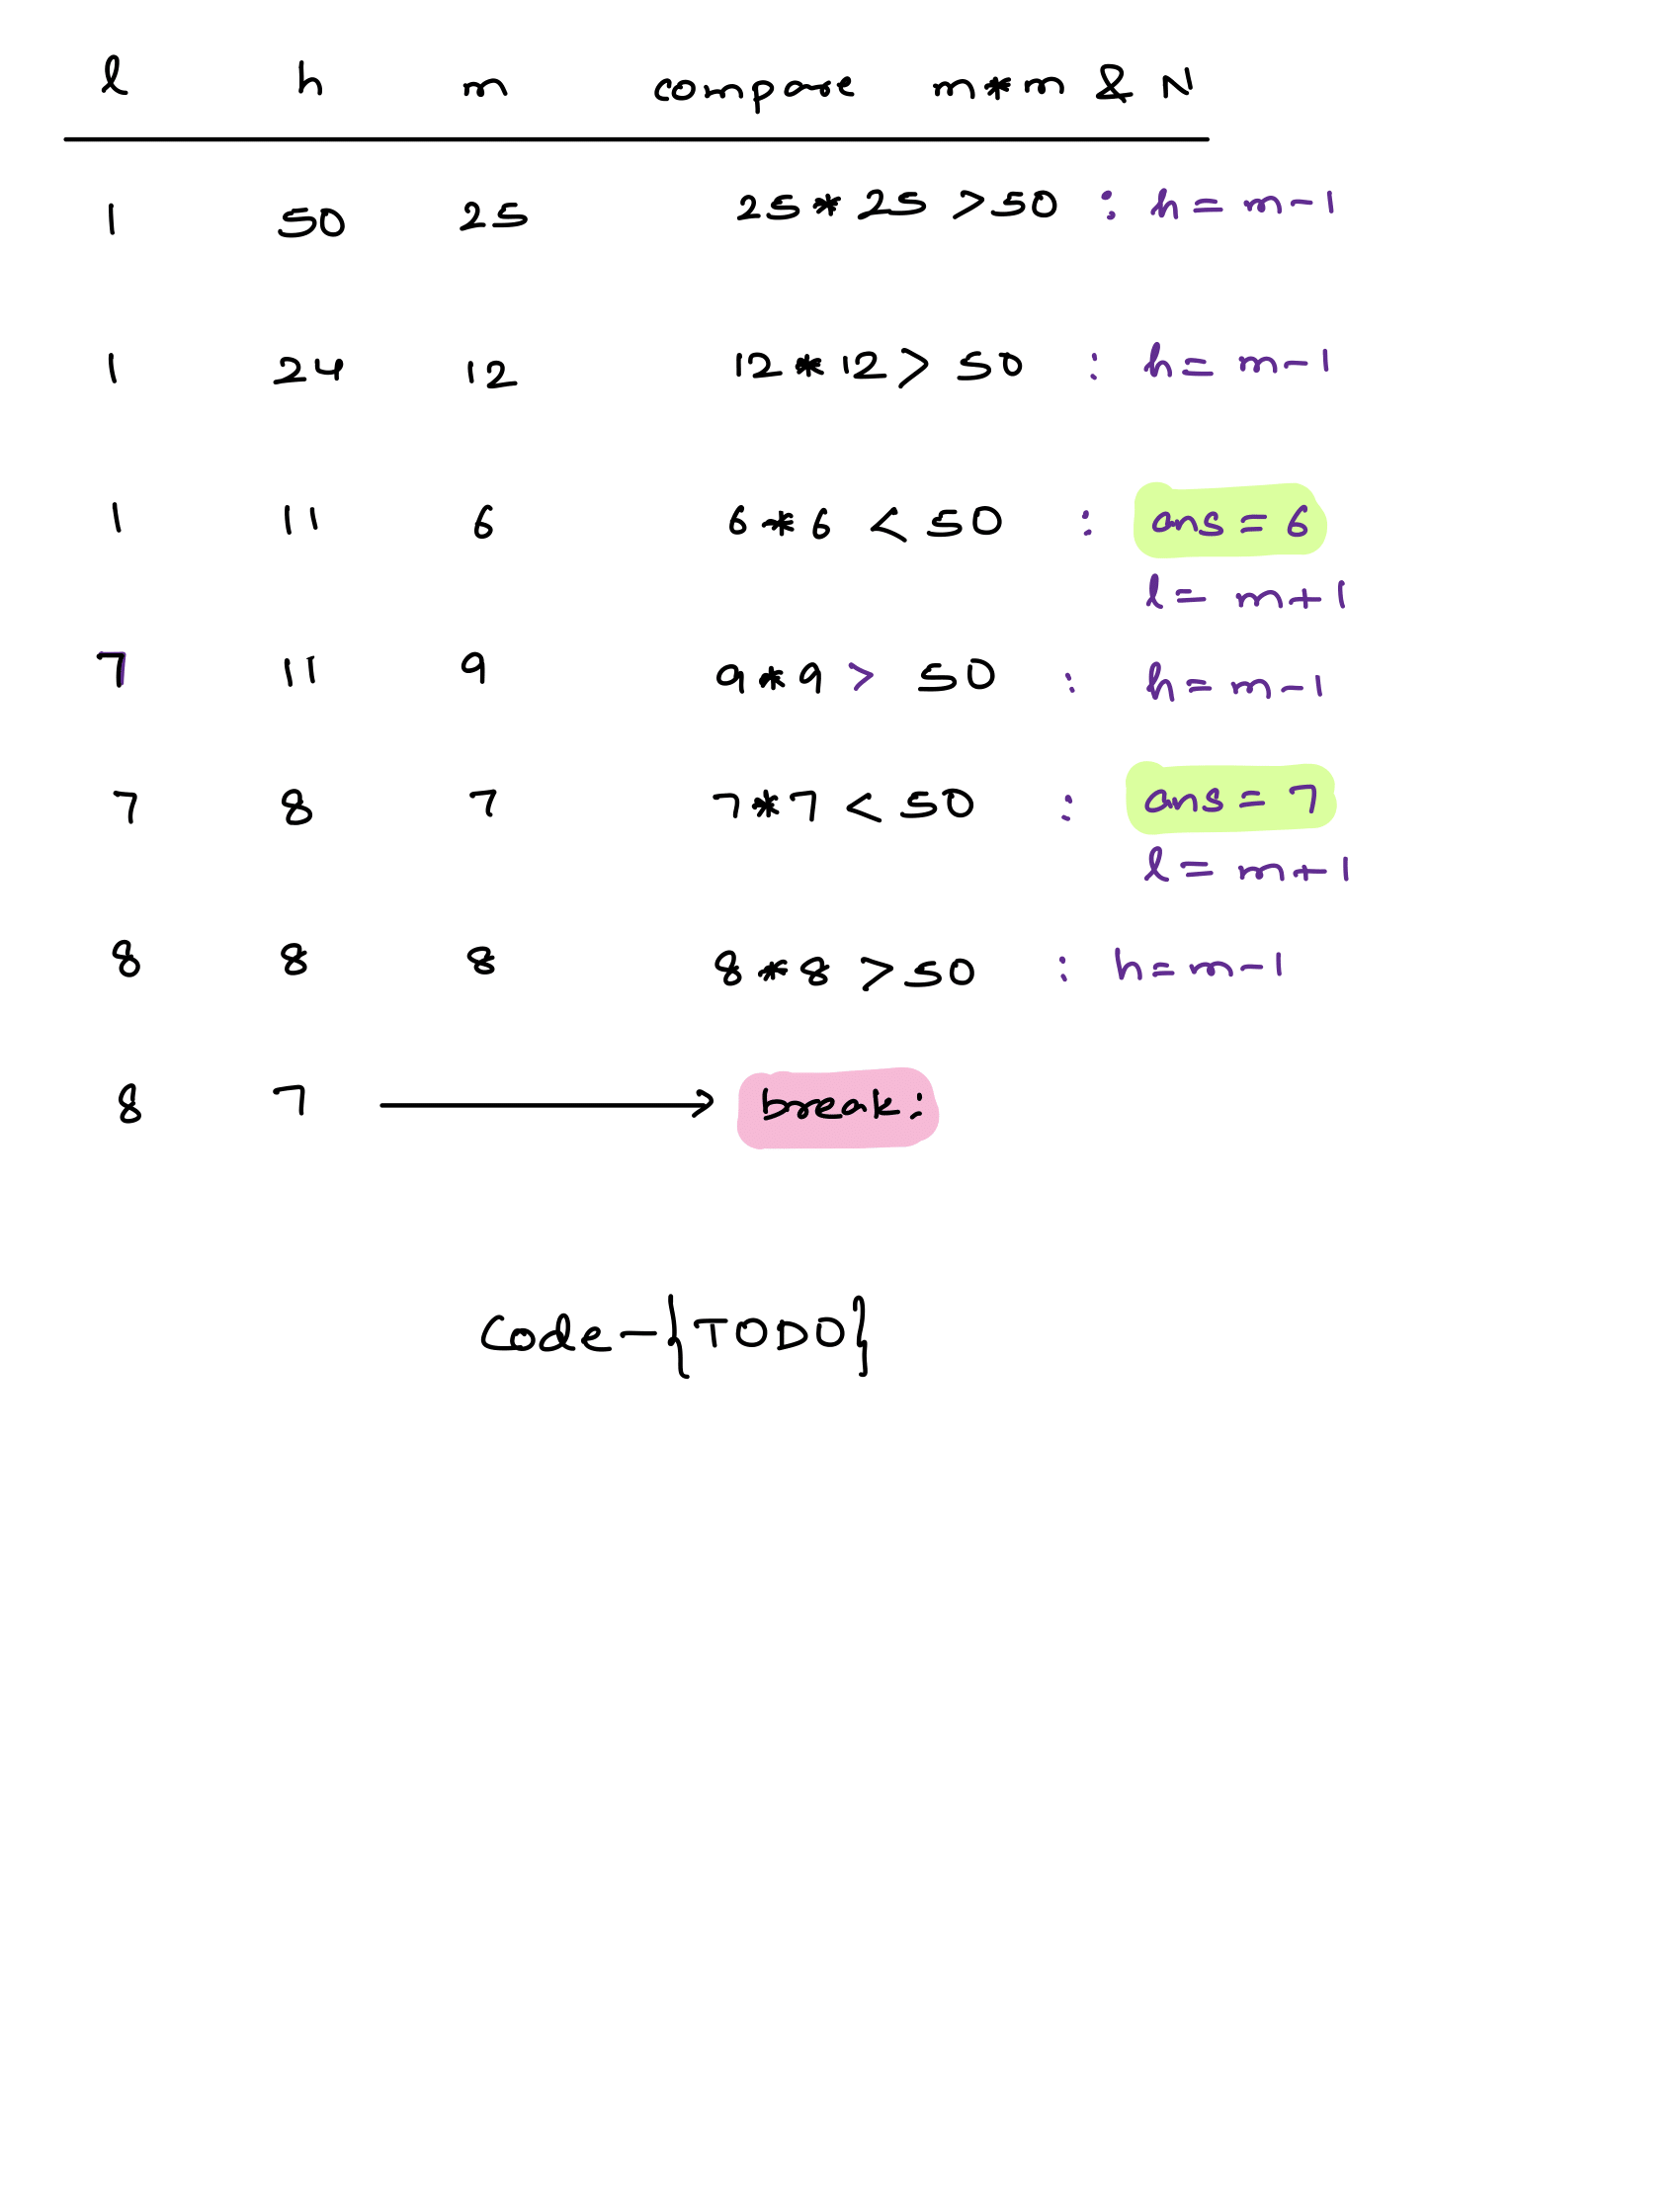 l h m compare m*m & N
1 50 25 25*25 >50 : h=m-1
1 24 12 12*12> 50 : h= m-1
1 11 6 6*6 < 50 : ans = 6
l= m+1
7 11 9 9*9 > 50 : h=m-1
7 8 7 7*7 < 50 : ans= 7
l= m+1
8 8 8 8*8 >50 : h=m-1
8 7 → break:
Code-{TODO}